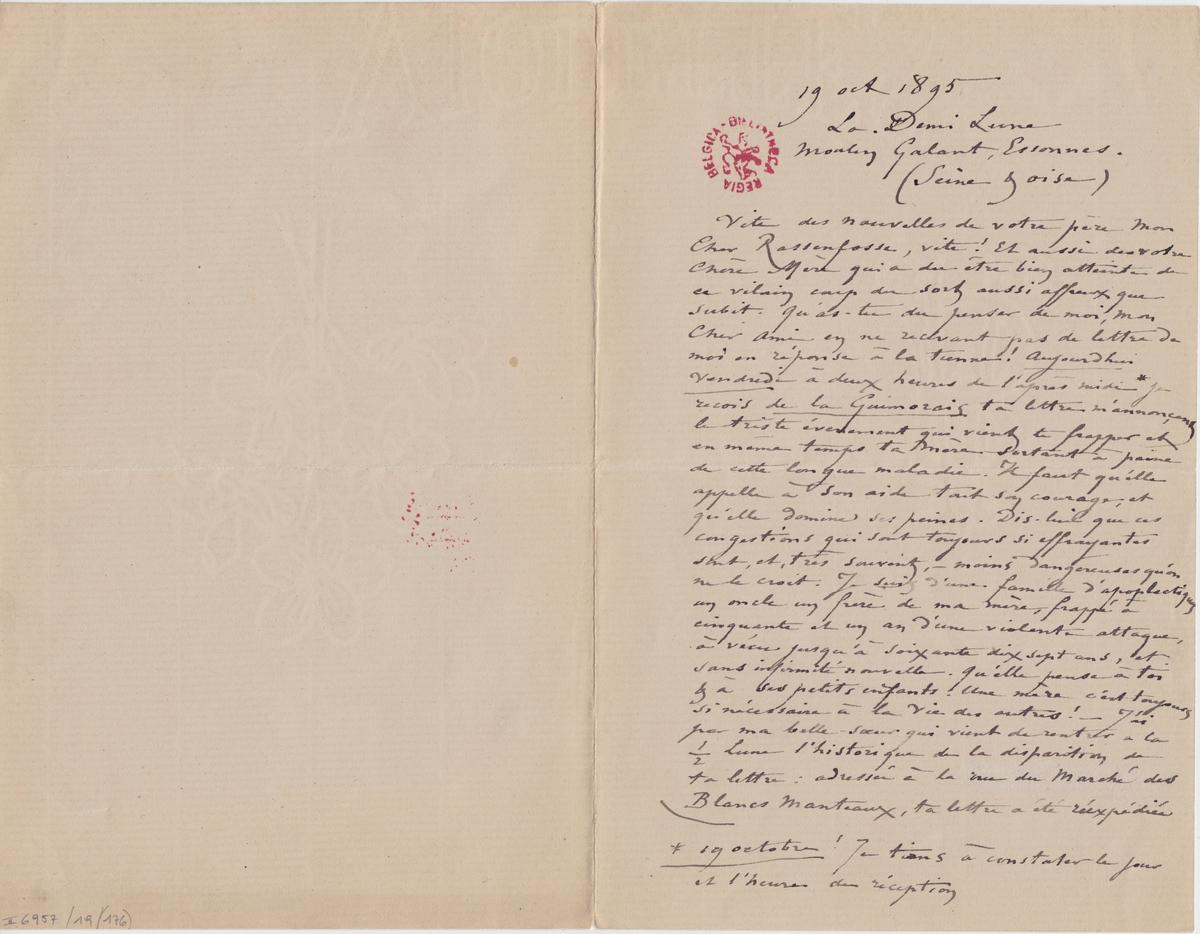 19 oct 1895
La Demi Lune
Moulin Galant, Essonnes.
(Seine & oise)
BIBLIOTHECA REGIA BELGICA
Vite des nouvelles de votre père mon
Cher Rassenfosse, vite! Et aussi de votre
Chère Mère qui a du être bien atteinte de
ce vilain coup du sort aussi affreux que
subit. Qu'as-tu du penser de moi, mon
Cher ami en ne recevant pas de lettre de
moi en réponse à la tienne! Aujourdhui
vendredi à deux heures de l'après midi * je
reçois de la Guimorais ta lettre m'annonçant
le triste évènement qui vient te frapper et
en même temps ta Mère sortant à peine
de cette longue maladie. Il faut qu'elle
appelle à son aide tout son courage, et
qu'elle domine ses peines. Dis-lui que ces
congestions qui sont toujours si effrayantes
sont, et, très souvent, – moins dangereuses qu'on
ne le croit. Je suis d'une famille d'apoplectiques
un oncle un frère de ma mère, frappé à
cinquante et un an d'une violente attaque,
à vécu jusqu'à soixante dix sept ans, et
sans infirmité nouvelle. Qu'elle pense à toi
& à ses petits enfants! Une mère c'est toujours
si nécessaire à la Vie des autres! – J'ai
par ma belle-sœur qui vient de rentrer à la
½ Lune l'historique de la disparition de
ta lettre : adressée à la rue du Marché des
Blancs Manteaux, ta lettre a été réexpédiée
* 19 octobre! Je tiens à constater le jour
et l'heure de réception
II 6957 /19/(176)